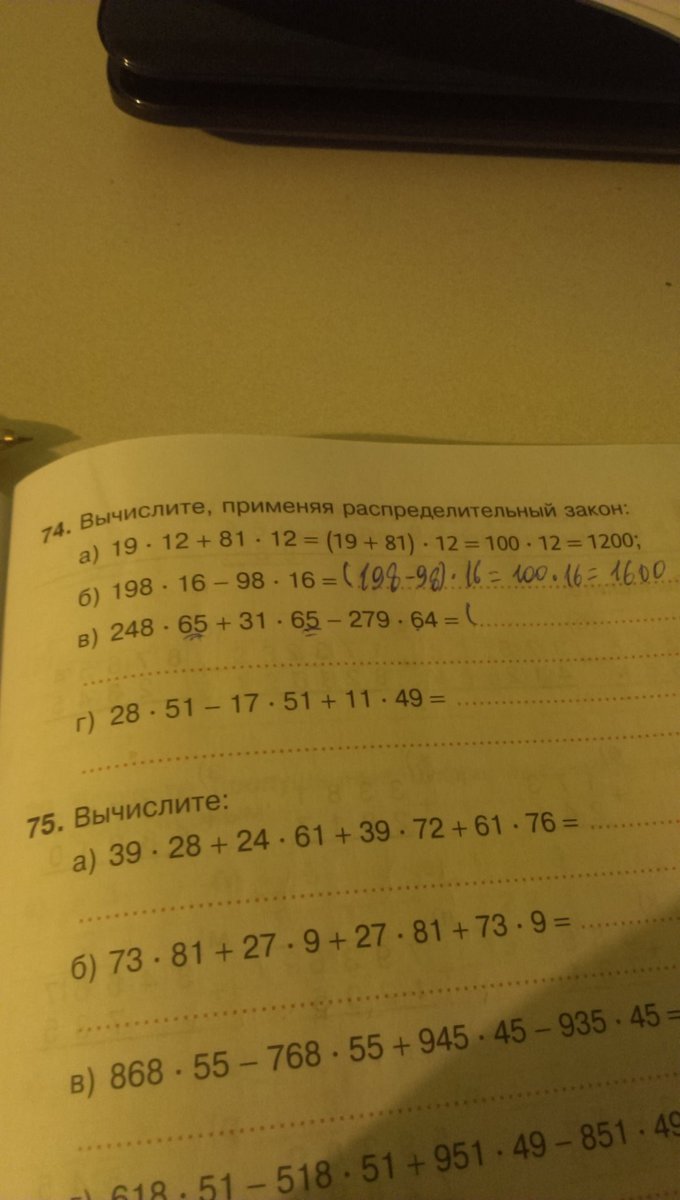 74. Вычислите, применяя распределительный закон:
а) 19 · 12 + 81 · 12 = (19 + 81) · 12 = 100 · 12 = 1200;
б) 198 · 16 – 98 · 16 = (198-98)·16 = 100·16 = 1600
в) 248 · 65 + 31 · 65 – 279 · 64 = (
г) 28 · 51 – 17 · 51 + 11 · 49 =
75. Вычислите:
а) 39 · 28 + 24 · 61 + 39 · 72 + 61 · 76 =
б) 73 · 81 + 27 · 9 + 27 · 81 + 73 · 9 =
в) 868 · 55 – 768 · 55 + 945 · 45 – 935 · 45 =
618 · 51 – 518 · 51 + 951 · 49 – 851 · 49